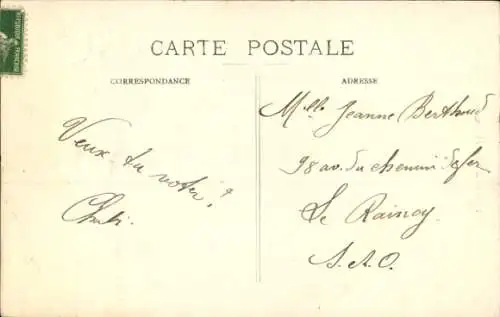 CARTE POSTALE
CORRESPONDANCE
ADRESSE
Veux-tu voter?
Mlle Jeanne Berthoud
98 av. du chemin de fer
Le Raincy
S. et O.